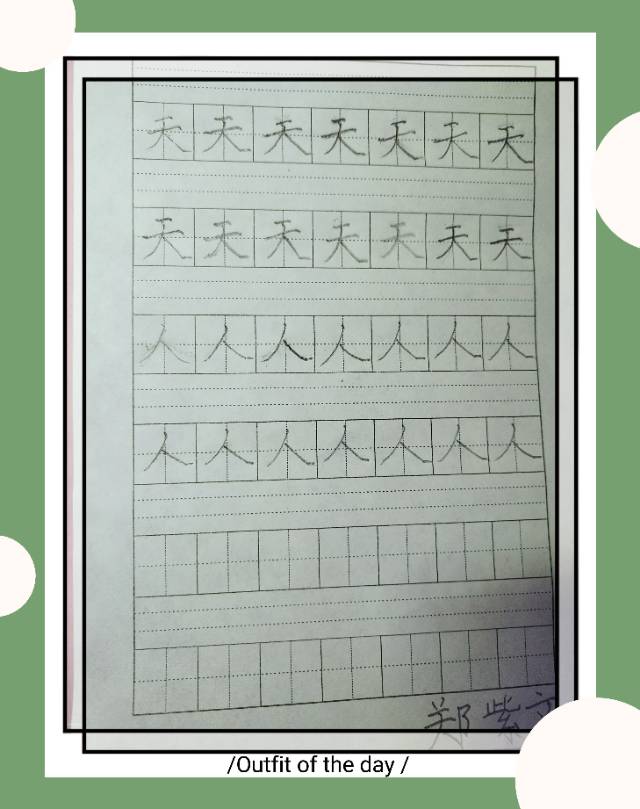 天天天天天天天
天天天天天天天
人人人人人人人
人人人人人人人
郑紫
/Outfit of the day /